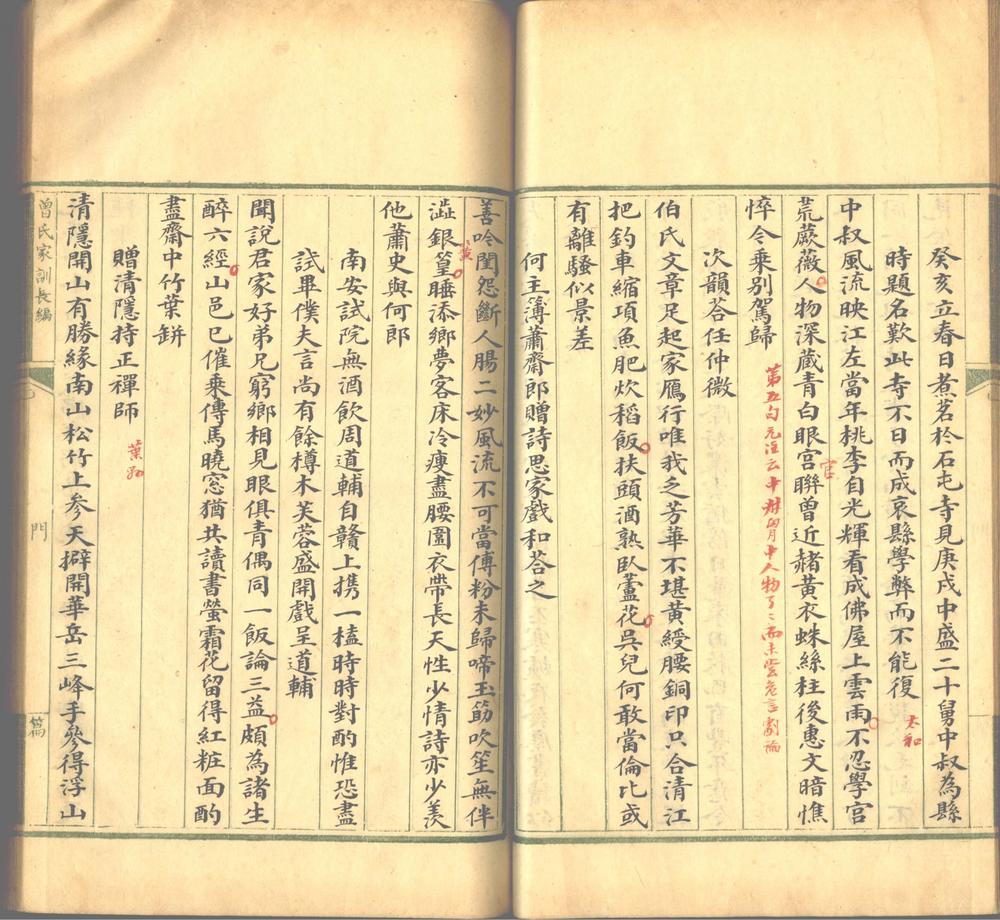 癸亥立春日煮茗於石屯寺見庚戌中盛二十舅中叔為縣
時題名歎此寺不日而成哀縣學弊而不能復
太和
中叔風流映江左當年桃李自光輝看成佛屋上雲雨不忍學宮
荒蕨薇人物深蔵青白眼宫聨曾近赭黃衣蛛絲柱後惠文暗憔
官
悴今乗別駕歸
第五句元注云中叔胷中人物了了而未嘗危言劇論
次韻荅任仲微
伯氏文章足起家鴈行唯我乏芳華不堪黃綬腰銅印只合清江
把釣車縮項魚肥炊稻飯扶頭酒熟臥蘆花吳兒何敢當倫比或
有離騷似景差
何主簿蕭齋郎贈詩思家戲和荅之
善吟閨怨斷人腸二妙風流不可當傅粉未歸啼玉筯吹笙無伴
澁銀篁睡添鄉夢客床冷瘦盡腰圍衣帶長天性少情詩亦少羨
簧
他蕭史與何郎
南安試院無酒飲周道輔自贛上携一榼時時對酌惟恐盡
試畢僕夫言尚有餘樽木芙蓉盛開戲呈道輔
聞說君家好弟兄窮鄉相見眼俱青偶同一飯論三益頗為諸生
醉六經山邑已催乗傳馬曉窓猶共讀書螢霜花留得紅粧面酌
盡齋中竹葉缾
贈清隱持正禪師
葉
清隱開山有勝緣南山松竹上參天擗開華岳三峰手參得浮山
曾氏家訓長編
門
篇